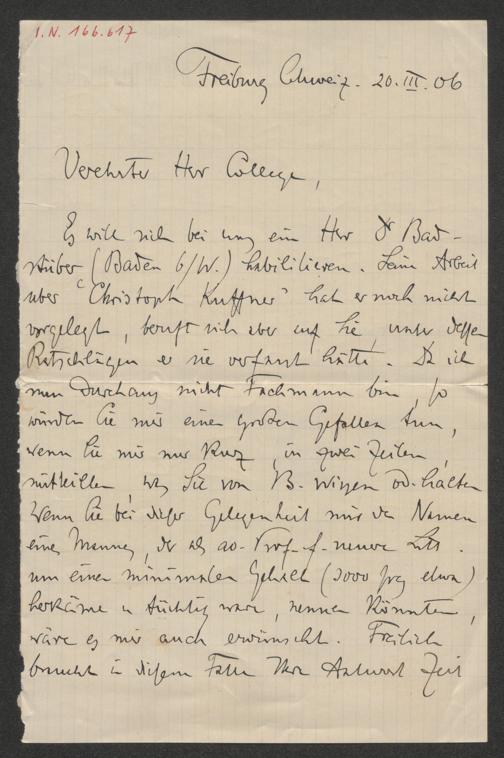 I.N. 166.617
Freiburg Schweiz. 20.III.06
Verehrter Herr College,
Es will sich bei uns ein Herr Dr Bad-
stüber (Baden b/W.) habilitieren. Seine Arbeit
über "Christoph Kuffner" hat er noch nicht
vorgelegt, beruft sich aber auf Sie, unter dessen
Ratschlägen er sie verfasst hätte. Da ich
nun durchaus nicht Fachmann bin, so
würden Sie mir einen großen Gefallen tun,
wenn Sie mir nur kurz, in zwei Zeilen,
mitteilten, was Sie von B. wissen od. halten
Wenn Sie bei dieser Gelegenheit mir den Namen
eines Mannes, der als ao. Prof. f. neuere Litt.
um einen minimalen Gehalt (3000 frs etwa)
herkäme u tüchtig wäre, nennen könnten,
wäre es mir auch erwünscht. Freilich
braucht in diesem Falle Ihre Antwort Zeit